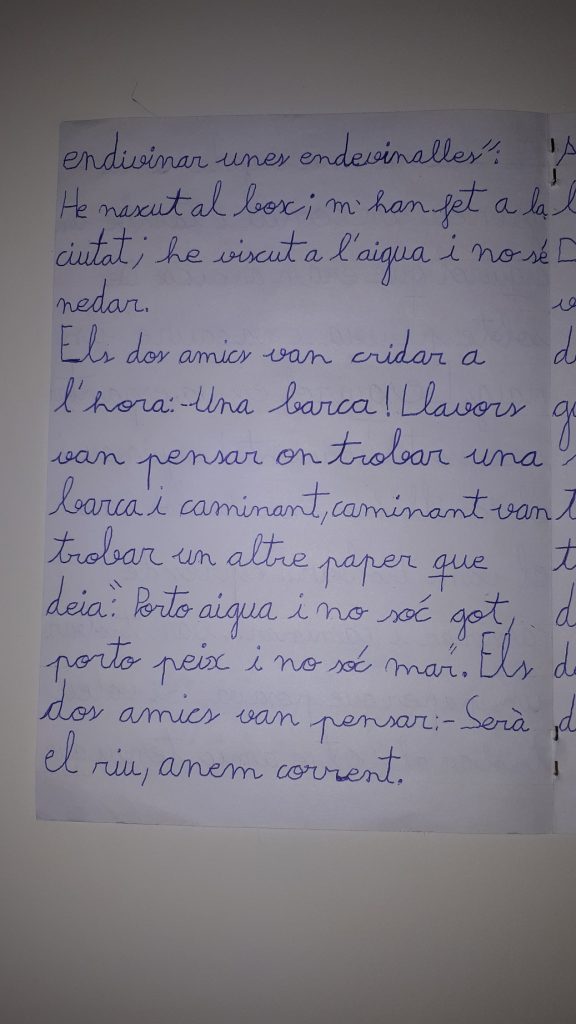 endivinar unes endevinalles":
He nascut al box; m'han fet a la
ciutat; he viscut a l'aigua i no sé
nedar.
Els dos amics van cridar a
l'hora:-Una barca! Llavors
van pensar on trobar una
barca i caminant, caminant van
trobar un altre paper que
deia:" Porto aigua i no sóc got,
porto peix i no sóc mar". Els
dos amics van pensar:- Serà
el riu, anem corrent.